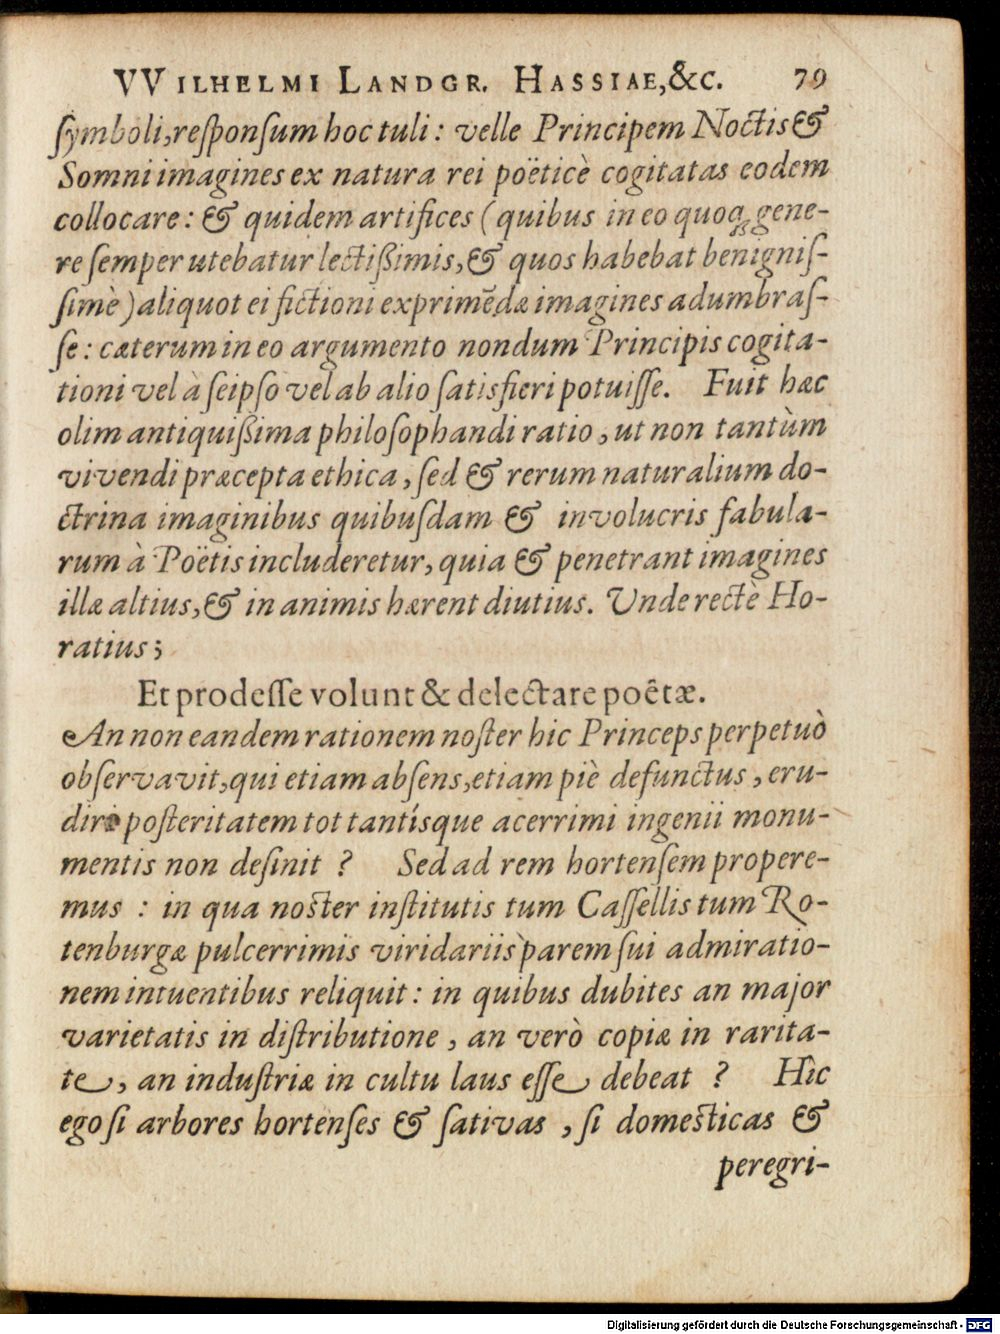 VVILHELMI LANDGR. HASSIAE,&C. 79
ſymboli,reſponſum hoc tuli: velle Principem Noctis &
Somni imagines ex natura rei poëticè cogitatas eodem
collocare: & quidem artifices (quibus in eo quoq; gene-
re ſemper utebatur lectißimis, & quos habebat benigniſ-
ſimè) aliquot ei fictioni exprimẽdæ imagines adumbraſ-
ſe: cæterum in eo argumento nondum Principis cogita-
tioni vel à ſeipſo vel ab alio ſatisfieri potuiſſe. Fuit hæc
olim antiquißima philoſophandi ratio, ut non tantùm
vivendi præcepta ethica, ſed & rerum naturalium do-
ctrina imaginibus quibuſdam & involucris fabula-
rum à Poëtis includeretur, quia & penetrant imagines
illæ altius, & in animis hærent diutius. Unde rectè Ho-
ratius;
Et prodeſſe volunt & delectare poêtæ.
An non eandem rationem noſter hic Princeps perpetuò
obſervavit, qui etiam abſens, etiam piè defunctus, eru-
dire poſteritatem tot tantísque acerrimi ingenii monu-
mentis non deſinit ? Sed ad rem hortenſem propere-
mus : in qua noſter inſtitutis tum Caſſellis tum Ro-
tenburgæ pulcerrimis viridariis parem ſui admiratio-
nem intuentibus reliquit: in quibus dubites an major
varietatis in diſtributione, an verò copiæ in rarita-
te, an induſtriæ in cultu laus eſſe debeat ? Hîc
ego ſi arbores hortenſes & ſativas, ſi domeſticas &
peregri-
Digitalisierung gefördert durch die Deutsche Forschungsgemeinschaft - DFG